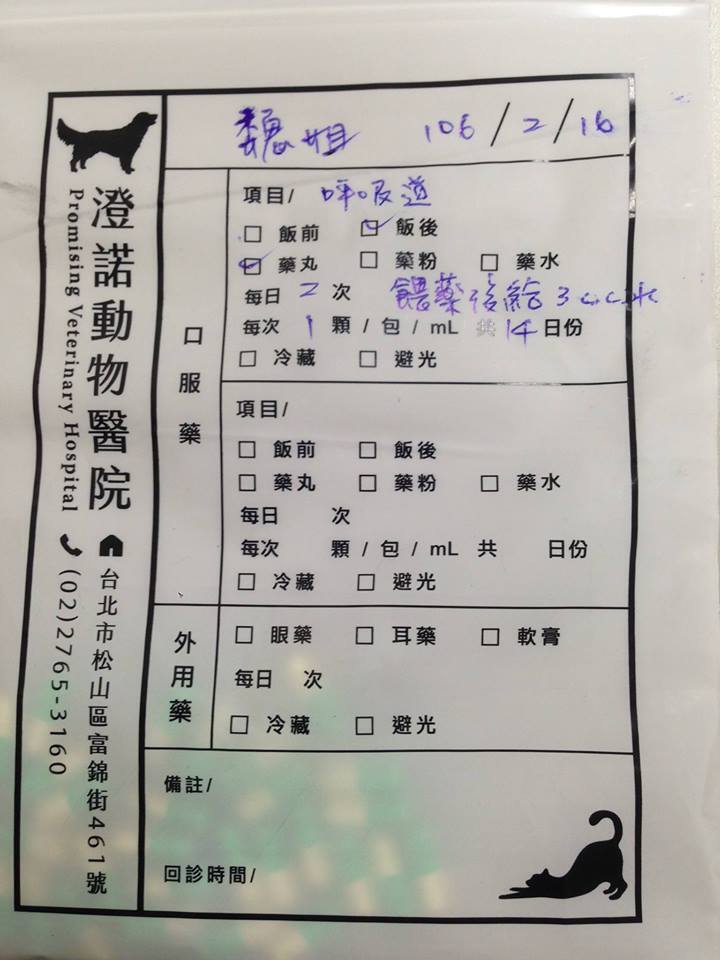 澄諾動物醫院
Promising Veterinary Hospital
台北市松山區富錦街461號
(02)2765-3160
魏姐 106/2/16
口服藥
項目/ 呼吸道
☐ 飯前 ☑ 飯後
☑ 藥丸 ☐ 藥粉 ☐ 藥水
每日 2 次 餵藥後給3c.c水
每次 1 顆 / 包 / mL 共 14 日份
☐ 冷藏 ☐ 避光
項目/
☐ 飯前 ☐ 飯後
☐ 藥丸 ☐ 藥粉 ☐ 藥水
每日 次
每次 顆 / 包 / mL 共 日份
☐ 冷藏 ☐ 避光
外用藥
☐ 眼藥 ☐ 耳藥 ☐ 軟膏
每日 次
☐ 冷藏 ☐ 避光
備註/
回診時間/